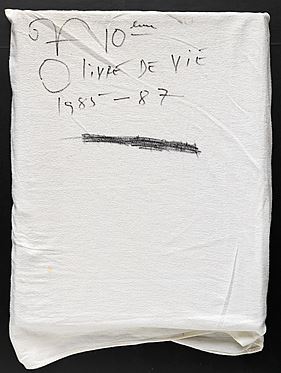 10ème
LIVRE DE VIE
1985-87